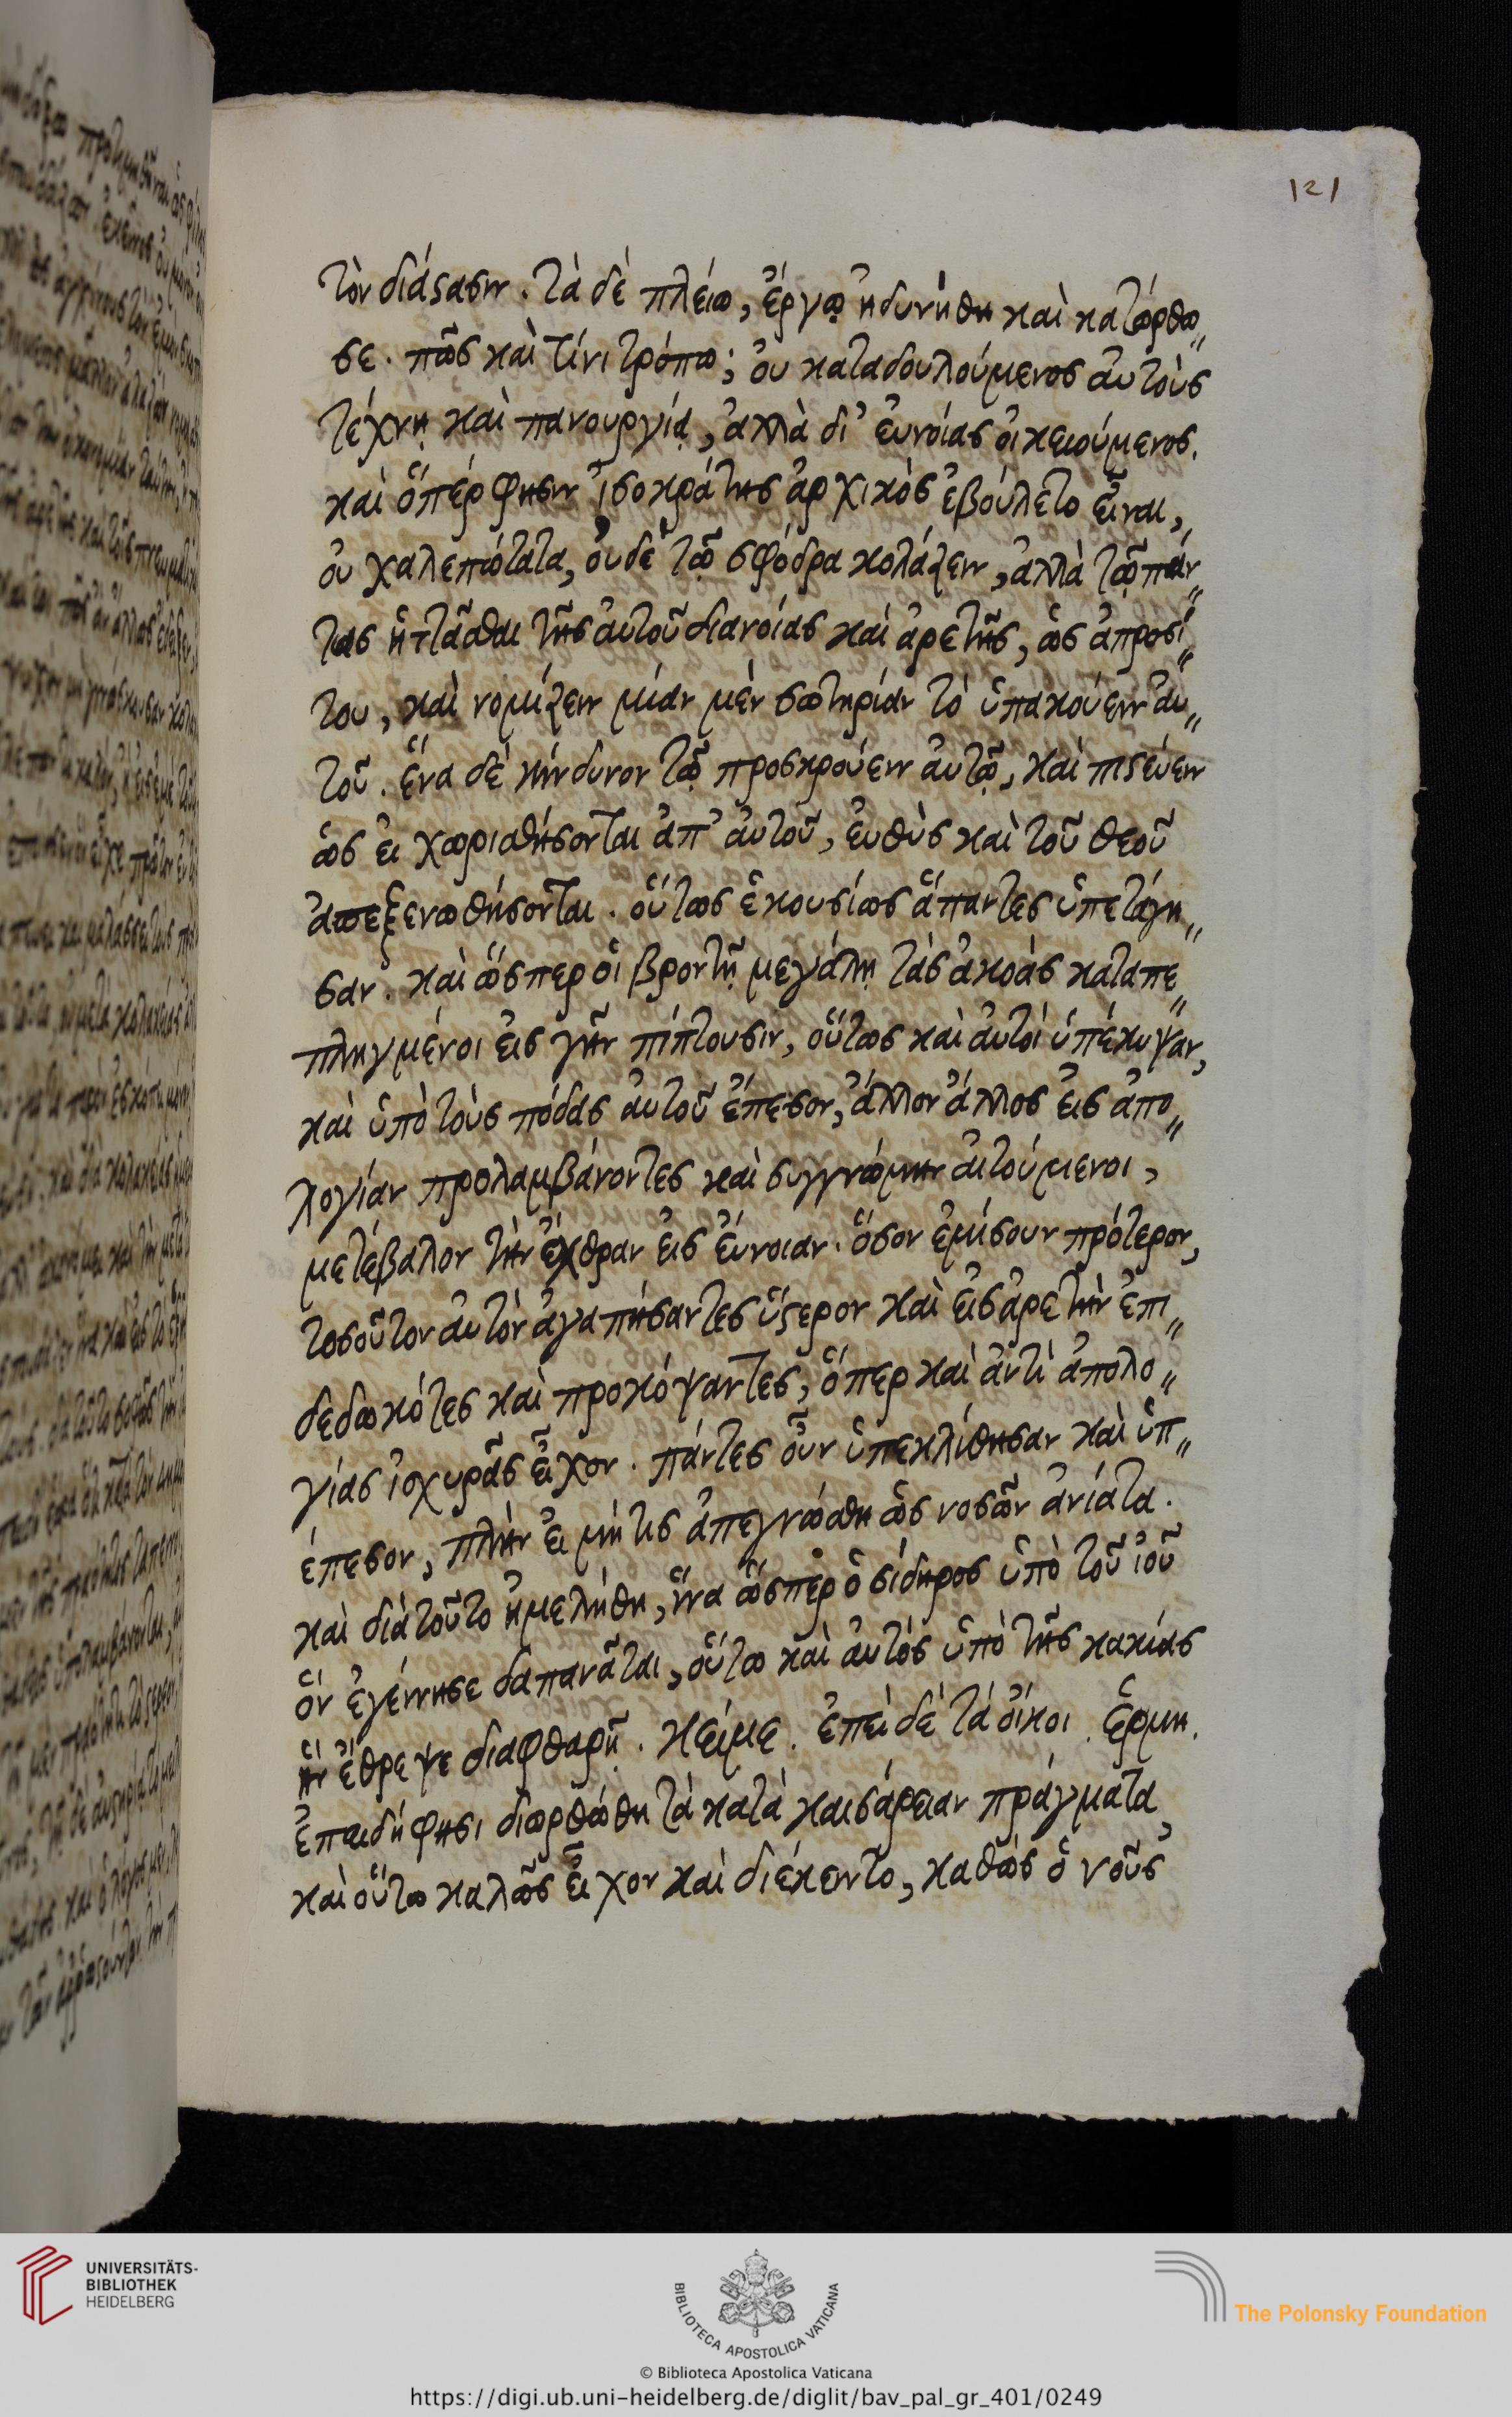 121
τὸν διάστασιν. τὰ δὲ πλείω, ἔργῳ ἠδυνήθη καὶ κατώρθω„
σε. πῶς καὶ τίνι τρόπω; ὀυ καταδουλούμενος ἀυτοὺς
τέχνῃ καὶ πανουργίᾳ, ἀλλὰ δι' ἐυνοίας ὀικειούμενος.
καὶ ὅπέρ φησιν ἰσοκράτης ἀρχικὸς ἐβούλετο εἶναι,
ὀυ χαλεπώτατα, ὀυδὲ τῷ σφόδρα κολάζειν, ἀλλὰ τῷ πάν„
τας ἡττᾶσθαι τῆς ἀυτοῦ διανοίας καὶ ἀρετῆς, ὡς ἀπροσί„
του, καὶ νομίζειν μίαν μὲν σωτηρίαν τὸ ὑπακούειν ἀυ„
τοῦ. ἕνα δὲ κίνδυνον τῷ προσκρούειν ἀυτῷ, καὶ πιστεύειν
ὡς ἐι χωρισθήσονται ἀπ' ἀυτοῦ, ἐυθὺς καὶ τοῦ θεοῦ
ἀπεξενωθήσονται. οὕτως ἑκουσίως ἅπαντες ὑπετάγη„
σαν. καὶ ὥσπερ ὁι βροντῇ μεγάλῃ τὰς ἀκοὰς καταπε„
πληγμένοι ἐις γῆν πίπτουσιν, οὕτως καὶ ἀυτοὶ ὑπέκυψαν,
καὶ ὑπὸ τοὺς πόδας ἀυτοῦ ἔπεσον, ἄλλον ἄλλος ἐις ἀπο„
λογίαν προλαμβάνοντες καὶ συγγνώμην ἀιτούμενοι,
μετέβαλον τὴν ἔχθραν ἐις ἔυνοιαν. ὅσον ἐμίσουν πρότερον,
τοσοῦτον ἀυτὸν ἀγαπήσαντες ὕστερον καὶ ἐις ἀρετὴν ἐπι„
δεδωκότες καὶ προκόψαντες, ὅπερ καὶ ἀντὶ ἀπολο„
γίας ἰσχυρᾶς εἶχον. πάντες οὖν ὑπεκλίθησαν καὶ ὑπ„
έπεσον, πλὴν ἐι μή τις ἀπεγνώσθη ὡς νοσῶν ἀνίατα.
καὶ διὰ τοῦτο ἠμελήθη, ἵνα ὥσπερ ὁ σίδηρος ὑπὸ τοῦ ἰοῦ
ὃν ἐγέννησε δαπανᾶται, οὕτω καὶ ἀυτὸς ὑπὸ τῆς κακίας
ἣν ἔθρεψε διαφθαρῇ. κείμε. ἐπεὶ δὲ τὰ ὄικοι. ἑρμη.
ἐπειδή φησι διωρθώθη τὰ κατὰ καισάρειαν πράγματα,
καὶ οὕτω καλῶς εἶχον καὶ διέκειντο, καθὼς ὁ νοῦς
UNIVERSITÄTS-
BIBLIOTHEK
HEIDELBERG
BIBLIOTECA APOSTOLICA VATICANA
The Polonsky Foundation
© Biblioteca Apostolica Vaticana
https://digi.ub.uni-heidelberg.de/diglit/bav_pal_gr_401/0249